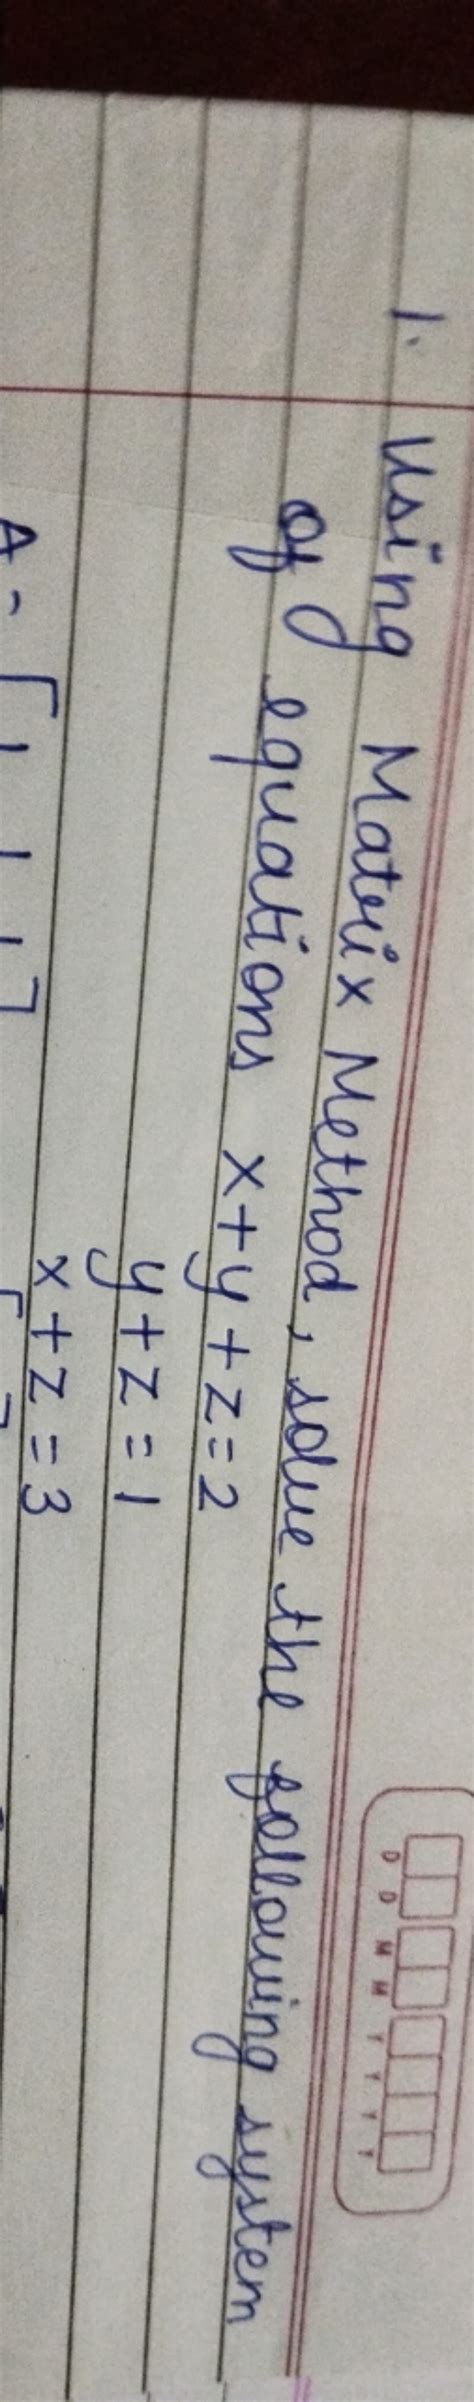 D D M M Y Y Y Y
1. Using Matrix Method, solve the following system
of equations x+y+z=2
y+z=1
x+z=3
A = [ 1 1 1 ]